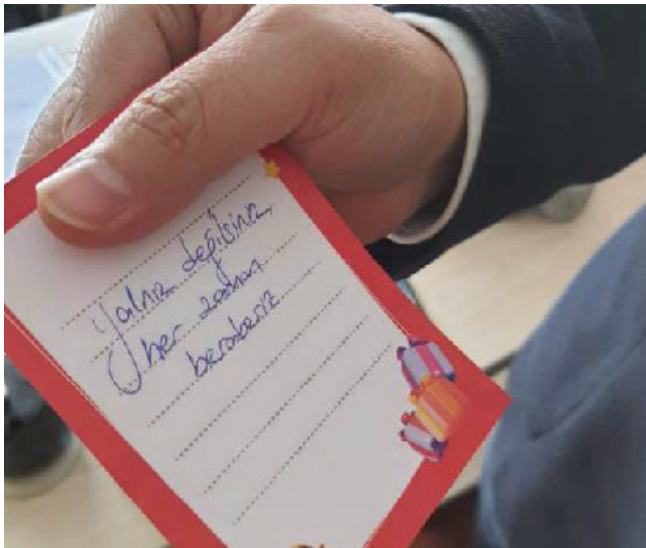 Yalnız değilsiniz
her zaman
beraberiz